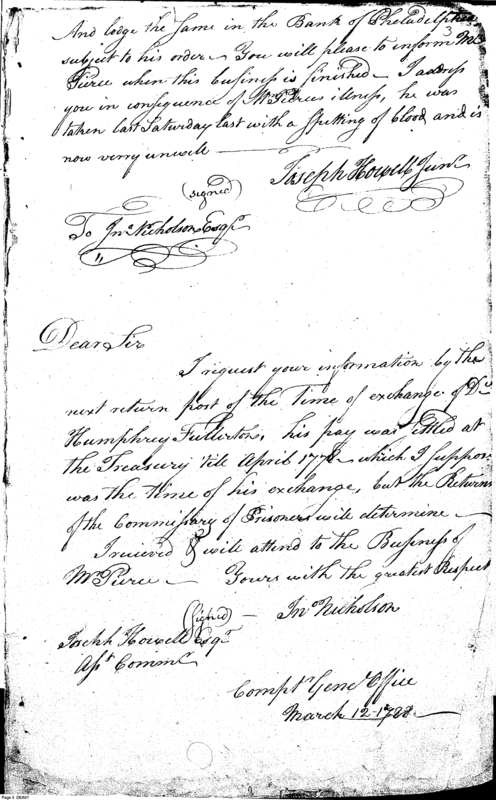 And lodge the same in the Bank of Philadelphia
3
subject to his order – You will please to inform Mr
Pierce when this business is finished – I address
you in consequence of Mr Pierces illness, he was
taken last Saturday last with a Spitting of blood and is
now verry unwell –
Joseph Howell Junr
(signed)
To Jno Nicholson Esqr
Dear Sir
I request your information by the
next return post of the Time of exchange of Dr
Humphrey Fullerton, his pay was settled at
the Treasury 'till April 1778 which I suppose
was the time of his exchange, but the Returns
of the Commissary of Prisoners will determine –
I recieved & will attend to the Business of
Mr Pierce – Yours with the greatest Respect
(signed) – Jno Nicholson
Joseph Howell Esqr
Asst Commr
Compt Genl Office
March 12 – 1788 –
Page 3 DEA01